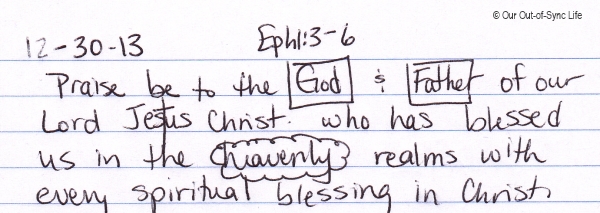 © Our Out-of-Sync Life
12-30-13 Eph1:3-6
Praise be to the God & Father of our
Lord Jesus Christ. who has blessed
us in the heavenly realms with
every spiritual blessing in Christ.